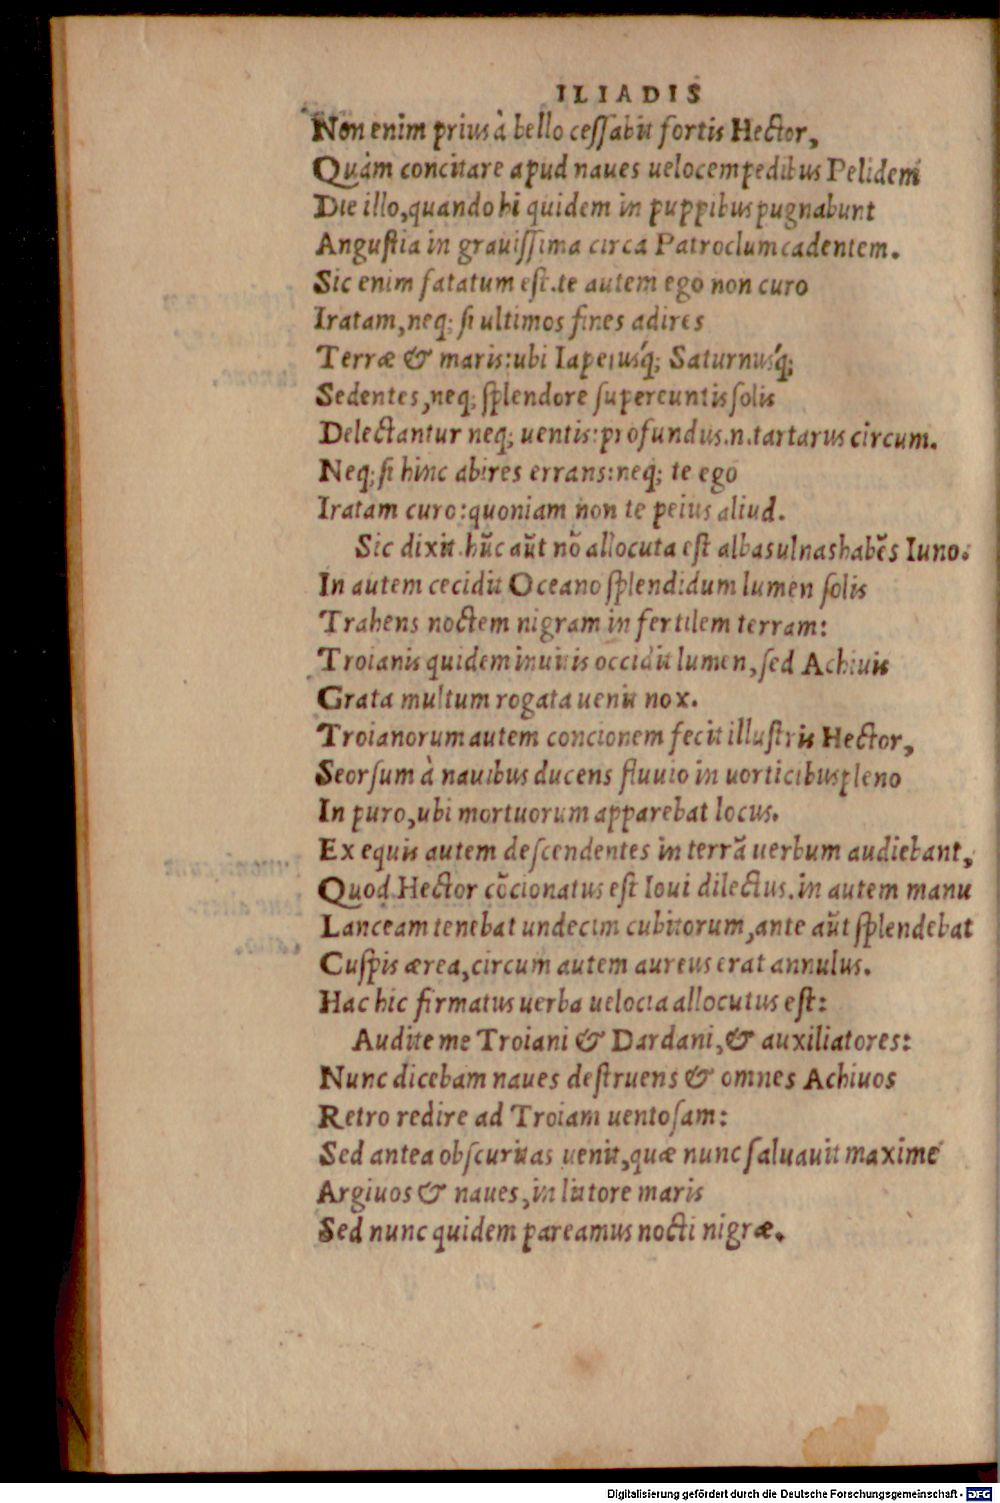 ILIADIS
Non enim prius à bello cessabit fortis Hector,
Quàm concitare apud naues uelocem pedibus Pelidem
Die illo, quando hi quidem in puppibus pugnabunt
Angustia in grauissima circa Patroclum cadentem.
Sic enim fatatum est. te autem ego non curo
Iratam, neq; si ultimos fines adires
Terræ & maris: ubi Iapetusq́; Saturnusq́;
Sedentes, neq; splendore supereuntis solis
Delectantur neq; uentis: profundus .n. tartarus circum.
Neq; si hinc abires errans: neq; te ego
Iratam curo: quoniam non te peius aliud.
Sic dixit. hũc aũt nõ allocuta est albas ulnas habẽs Iuno.
In autem cecidit Oceano splendidum lumen solis
Trahens noctem nigram in fertilem terram:
Troianis quidem inuitis occidit lumen, sed Achiuis
Grata multum rogata uenit nox.
Troianorum autem concionem fecit illustris Hector,
Seorsum à nauibus ducens fluuio in uorticibus pleno
In puro, ubi mortuorum apparebat locus.
Ex equis autem descendentes in terrã uerbum audiebant,
Quod Hector cõcionatus est Ioui dilectus. in autem manu
Lanceam tenebat undecim cubitorum, ante aũt splendebat
Cuspis ærea, circum autem aureus erat annulus.
Hac hic firmatus uerba uelocia allocutus est:
Audite me Troiani & Dardani, & auxiliatores:
Nunc dicebam naues destruens & omnes Achiuos
Retro redire ad Troiam uentosam:
Sed antea obscuritas uenit, quæ nunc saluauit maximè
Argiuos & naues, in littore maris
Sed nunc quidem pareamus nocti nigræ.
Digitalisierung gefördert durch die Deutsche Forschungsgemeinschaft - DFG